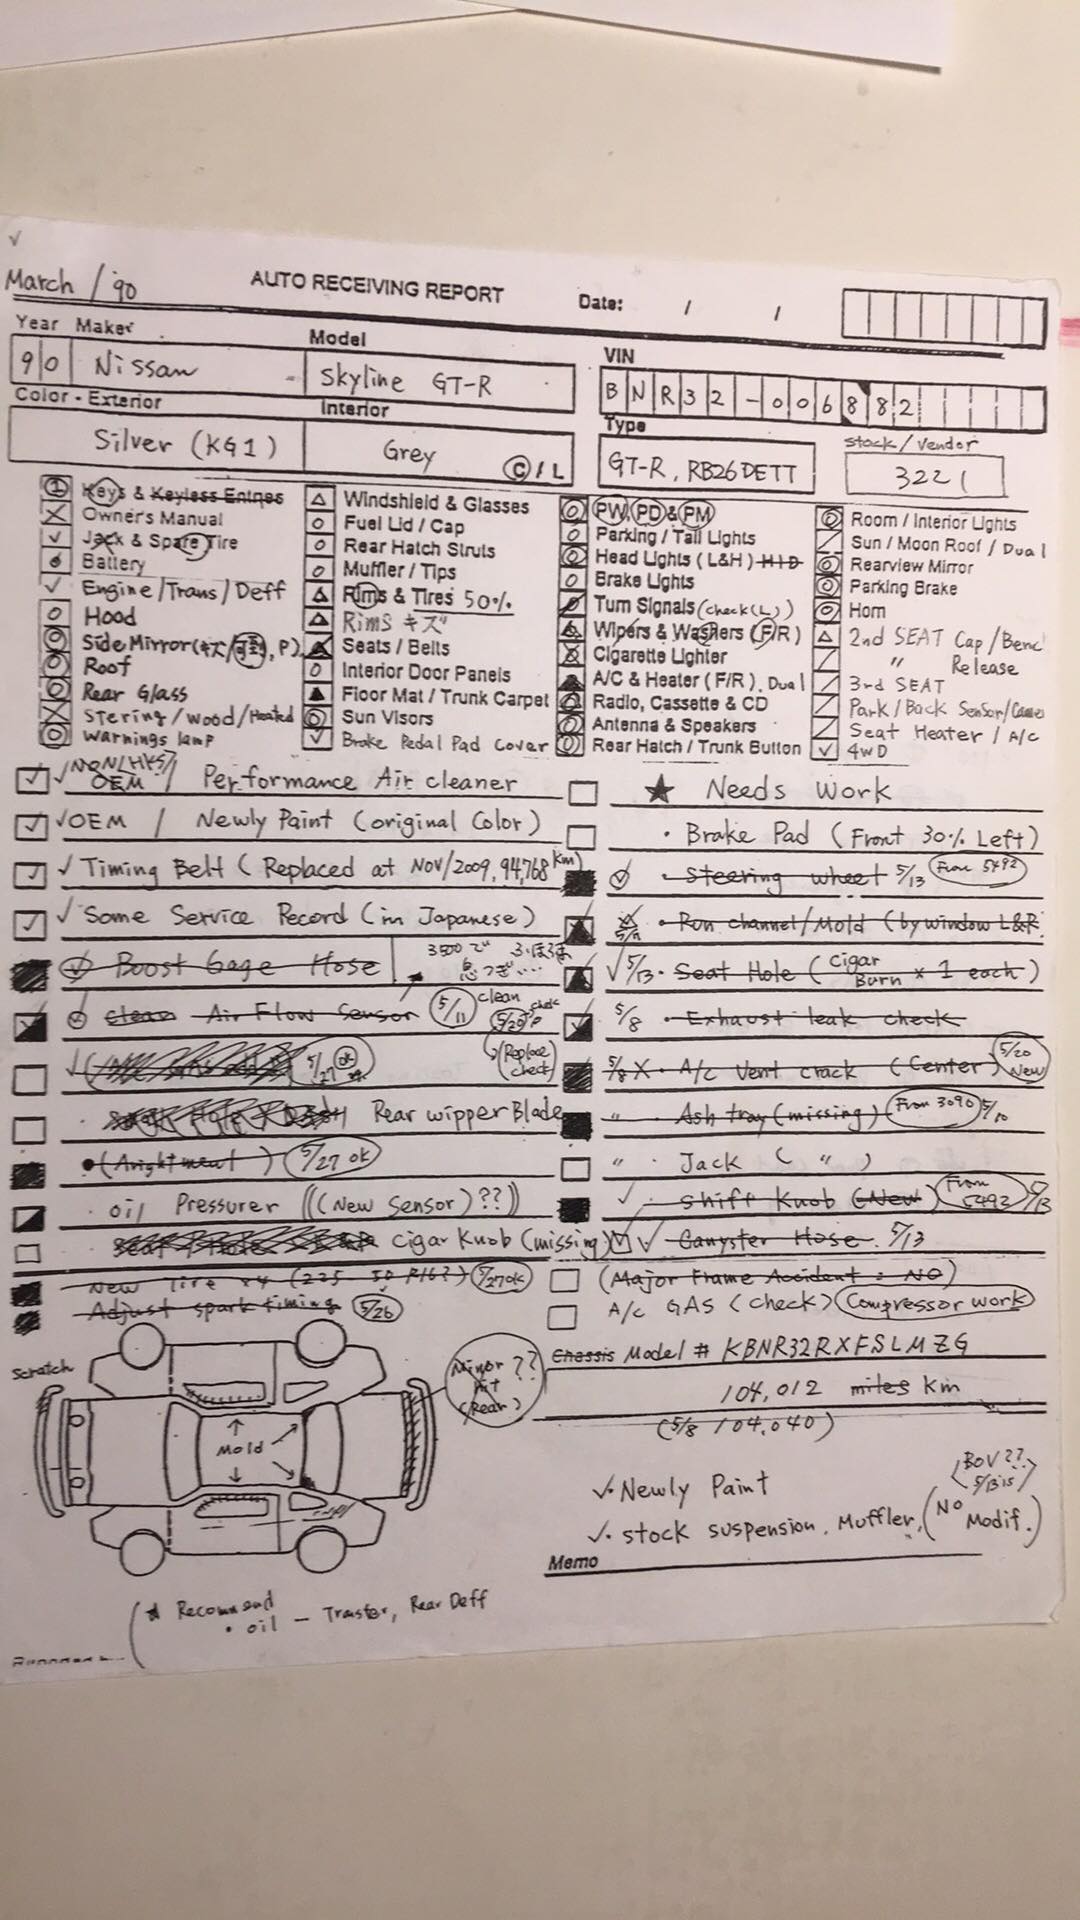 March / '90
AUTO RECEIVING REPORT
Date: / /
Year Maker
Model
VIN
90 Nissan
Skyline GT-R
BNR32-006882
Color - Exterior
Interior
Type
stock/vendor
Silver (KG1)
Grey
C/L
GT-R, RB26DETT
3221
Keys & Keyless Entries
Owner's Manual
Jack & Spare Tire
Battery
Engine/Trans/Deff
Hood
Side Mirror(キズ/ , P)
Roof
Rear Glass
Stering/wood/Heated
Warnings lamp
Windshield & Glasses
Fuel Lid / Cap
Rear Hatch Struts
Muffler / Tips
Rims & Tires 50%
Rims キズ
Seats / Belts
Interior Door Panels
Floor Mat / Trunk Carpet
Sun Visors
Brake Pedal Pad Cover
PW, PD & PM
Parking / Tail Lights
Head Lights (L&H) HID
Brake Lights
Turn Signals (check(L))
Wipers & Washers (F/R)
Cigarette Lighter
A/C & Heater (F/R). Dual
Radio, Cassette & CD
Antenna & Speakers
Rear Hatch / Trunk Button
Room / Interior Lights
Sun / Moon Roof / Dual
Rearview Mirror
Parking Brake
Horn
2nd SEAT Cap/Benc
" Release
3rd SEAT
Park/Back Sensor/Camer
Seat Heater / A/C
4WD
NON/HKS/
OEM / Performance Air cleaner
OEM / Newly Paint (original Color)
Timing Belt (Replaced at NOV/2009, 94,768 km)
Some Service Record (in Japanese)
Boost Gage Hose
3500で
息つぎ...
Clean Air Flow Sensor 5/11 clean
5/20
(Replace check)
5/27 ok
Rear wipper Blade
(Arightment) 5/27 ok
oil Pressurer ((New Sensor)??)
cigar Knob (missing)
New Tire x4 (225 50 R16?) 5/27ok
Adjust spark timing 5/26
★ Needs Work
· Brake Pad (Front 30% Left)
· Steering wheel 5/13 From 5492
5/11 · Run channel/Mold (by window L&R
5/13 · Seat Hole (cigar Burn x 1 each)
5/8 · Exhaust leak check
5/8 X · A/c Vent crack (Center) 5/20 New
" · Ash tray (missing) From 3090 5/10
" · Jack ( " )
· Shift Knob (New) From 5492 5/13
Canyster Hose 5/13
(Major Frame Accident : NO)
A/c GAS (check) Compressor work
Scratch
Mold
Minor ??
(Rear)
Chassis Model # KBNR32RXFSLMZG
104,012 miles km
(5/8 104,040)
Newly Paint
BOV??
5/13 '15
stock suspension, Muffler, (No Modif.)
Memo
★ Recommend
· oil - Transfer, Rear Deff